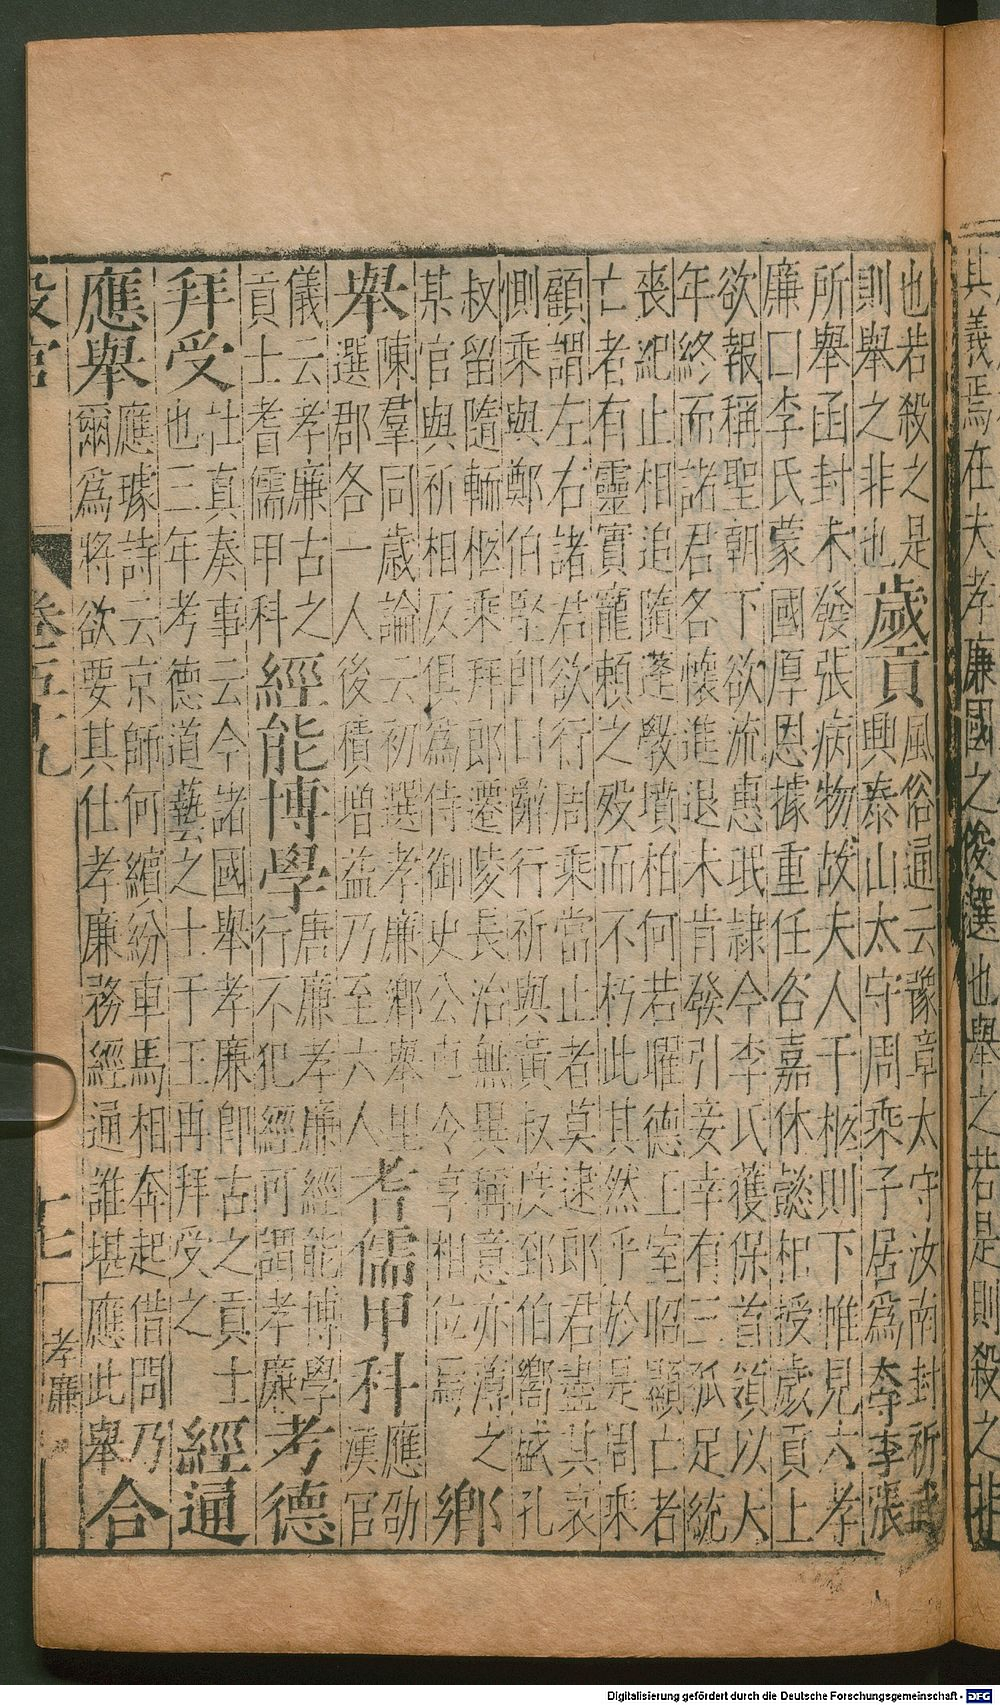 其義焉在夫孝廉國之俊選也舉之若是則殺之非
也若殺之是
則舉之非也
歲貢
風俗通云豫章太守汝南封祈武
興泰山太守周乘子居為李張
所舉函封未發張病物故夫人于柩則下帷見六孝
廉曰李氏蒙國厚恩據重任谷嘉休懿杞授歲貢上
欲報稱聖朝下欲流惠氓隸今李氏獲保首領以天
年終而諸君各懷進退未肯發引妾幸有三孤足統
喪紀止相追隨蓬斅墳柏何若曜德王室昭顯亡者
亡者有靈實寵賴之歿而不朽此其然乎於是周乘
顧謂左右諸君欲行周乘當止者莫逮郎君盡其哀
惻乘與鄭伯堅即日辭行祈與黃叔度郅伯嚮盛孔
叔留隨輀柩乘拜郎遷陵長治無異稱意亦薄之
某官與祈相反俱為侍御史公車令享相位焉
鄉舉
陳羣同歲論云初選孝廉鄉舉里
選郡各一人後積增益乃至六人
耆儒甲科
應劭
漢官
儀云孝廉古之
貢士耆儒甲科
經能博學
唐廉孝廉經能博學
行不犯經可謂孝廉
考德拜受
杜真奏事云今諸國舉孝廉即古之貢士
也三年考德道藝之士于王再拜受之
經通應舉
應璩詩云京師何繽紛車馬相奔起借問乃
爾為將欲要其仕孝廉務經通誰堪應此舉
合
設官
卷五十九
十七
孝廉
Digitalisierung gefördert durch die Deutsche Forschungsgemeinschaft - DFG